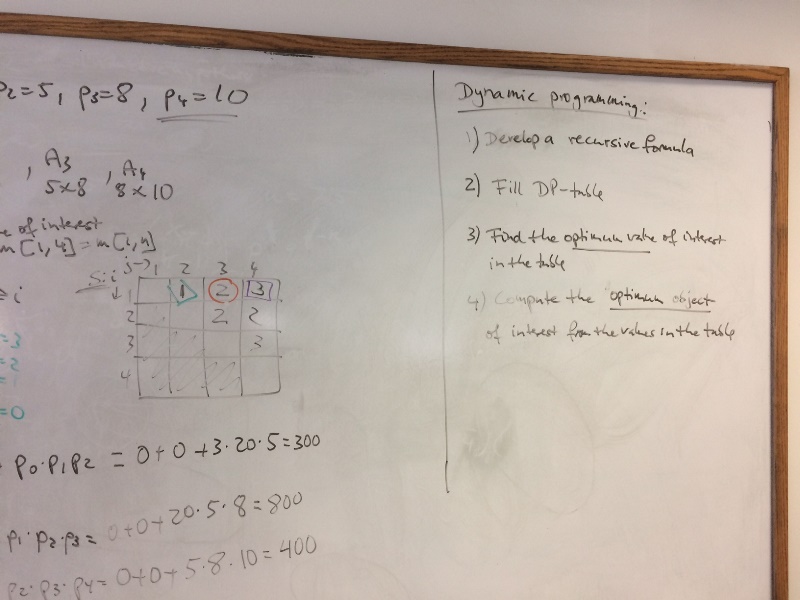 p2=5, p3=8, p4=10
, A3 , A4
5x8 8x10
of interest
m[1,4] = m[1,n]
S: i j→ 1 2 3 4
↓ 1 1 2 3
2 2 2
3 3
4
=3
=2
=1
=0
p0·p1p2 = 0+0+3·20·5=300
p1·p2·p3= 0+0+20·5·8=800
p2·p3·p4= 0+0+5·8·10=400
Dynamic programming:
1) Develop a recursive formula
2) Fill DP-table
3) Find the optimum value of interest
in the table
4) Compute the optimum object
of interest from the values in the table